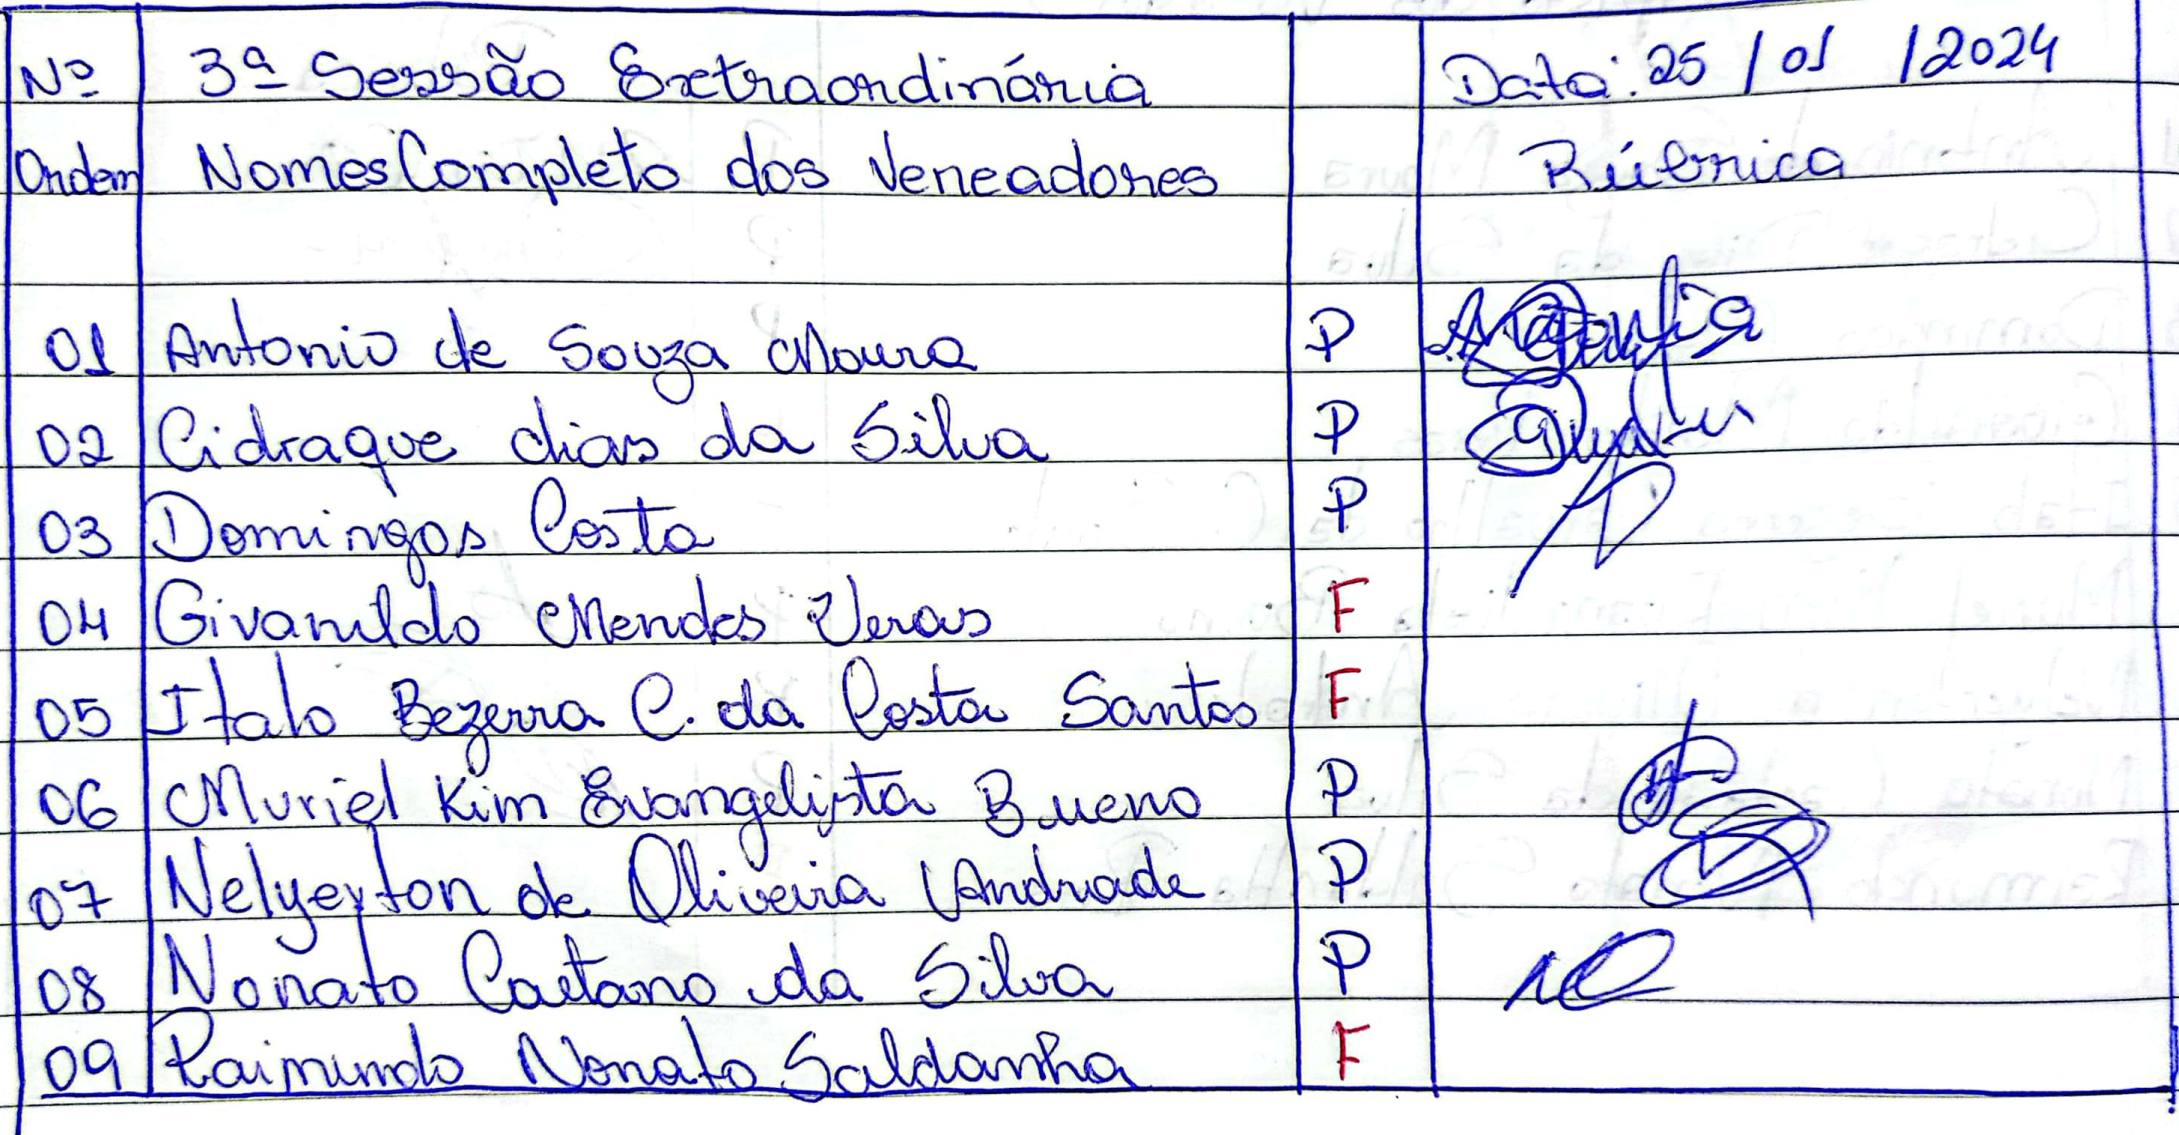 Nº 3ª Sessão Extraordinária Data: 25/01/2024
Ordem Nomes Completo dos Vereadores Rúbrica
01 Antonio de Souza Moura P
02 Cidraque dias da Silva P
03 Domingos Costa P
04 Givanildo Mendes Veras F
05 Italo Bezerra C. da Costa Santos F
06 Muriel Kim Evangelista Bueno P
07 Nelyerton de Oliveira Andrade P.
08 Nonato Caetano da Silva P
09 Raimundo Nonato Saldanha F